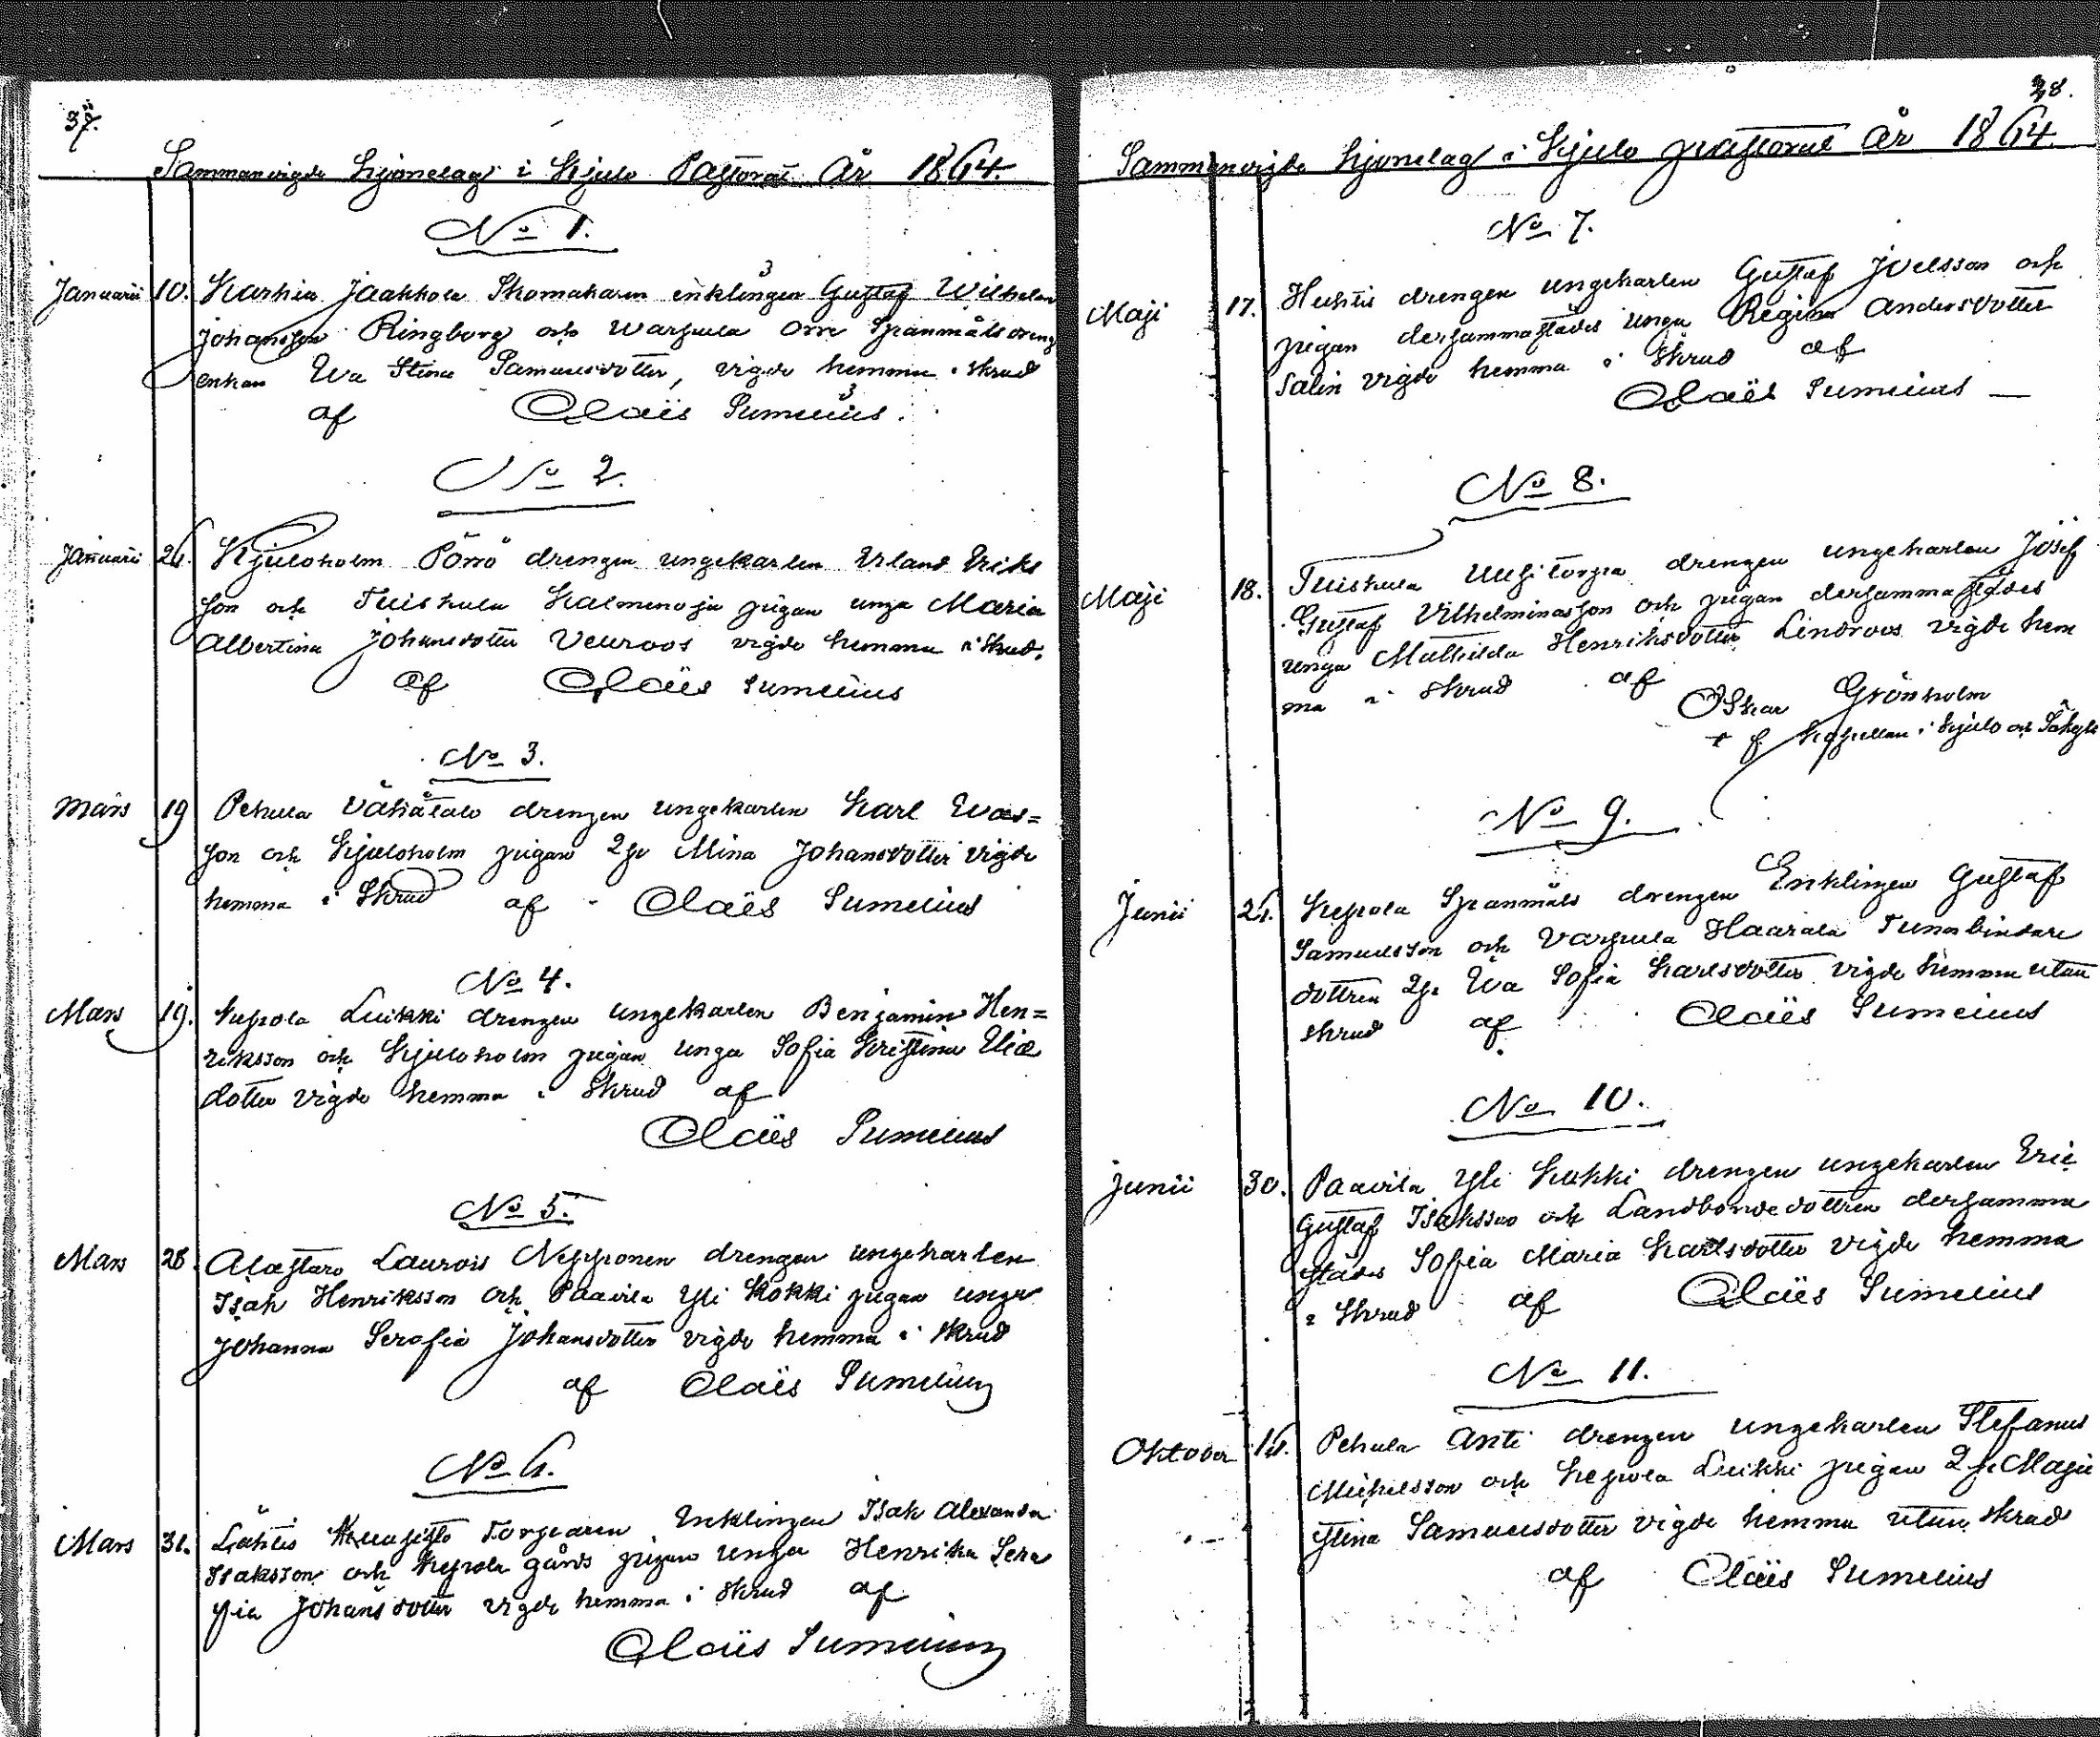 37.
Sammanvigde Hjonelag i Kjulo Pastorat År 1864.
No 1.
Januarii 10. Karhia Jaakkola Skomakaren enklingen Gustaf Wilhelm
Johansson Ringborg och Warpula Orre Spanmåls dreng
enkan Eva Stina Samuelsdotter, vigde hemma i skrud
af Claës Sumelius.
No 2.
Januarii 26. Kjuloholm Pörrö drengen ungekarlen Erland Eriks
son och Tuiskula Kalmenoja pigan unga Maria
Albertina Johansdotter Veuroos vigde hemma i skrud.
af Claës Sumelius
No 3.
Mars 19 Pehula Vähätalo drengen ungekarlen Karl Evas=
son och Kjuloholm pigan 2je Mina Johansdotter vigde
hemma i Skrud af Claës Sumelius
No 4.
Mars 19. Kepola Luikki drengen ungekarlen Benjamin Hen=
riksson och Kjuloholm pigan unga Sofia Kristina Eliæ
dotter vigde hemma i Skrud af
Claës Sumelius
No 5.
Mars 28. Alastaro Laurois Nepponen drengen ungekarlen
Isak Henriksson och Paavila Yli Kokki pigan unga
Johanna Serafia Johansdotter vigde hemma i skrud
af Claës Sumelius
No 6.
Mars 31. Lähtis Torparen Enklingen Isak Alexander
Isaksson och Kepola gårds pigan unga Henrika Sera
fia Johansdotter vigde hemma i skrud af
Claës Sumelius
38.
Sammanvigde Hjonelag i Kjulo pastorat År 1864.
No 7.
Maji 17. Huhtis drengen ungekarlen Gustaf Joelsson och
pigan dersammastädes unga Regina Andersdotter
Salin vigde hemma i Skrud af
Claës Sumelius
No 8.
Maji 18. Tuiskula Uusitorpa drengen ungekarlen Josef
Gustaf Vilhelminasson och pigan dersammastädes
unga Mathilda Henriksdotter Lindroos vigde hem
ma i skrud af
Oskar Grönholm
t f Kapellan i Kjulo och Säkylä
No 9.
Junii 26. Kepola Spanmåls drengen Enklingen Gustaf
Samuelsson och Varpula Haarala Tunnbindare
dottren 2je Eva Sofia Karlsdotter vigde hemma utan
skrud af Claës Sumelius
No 10.
Junii 30. Paavila Yli Kokki drengen ungekarlen Eric
Gustaf Isaksson och Landbondedottren dersamma
städes Sofia Maria Karlsdotter vigde hemma
i Skrud af Claës Sumelius
No 11.
Oktober 16. Pehula Anti drengen ungekarlen Stefanus
Michelsson och Kepola Luikki pigan 2je Maja
Stina Samuelsdotter vigde hemma utan skrud
af Claës Sumelius